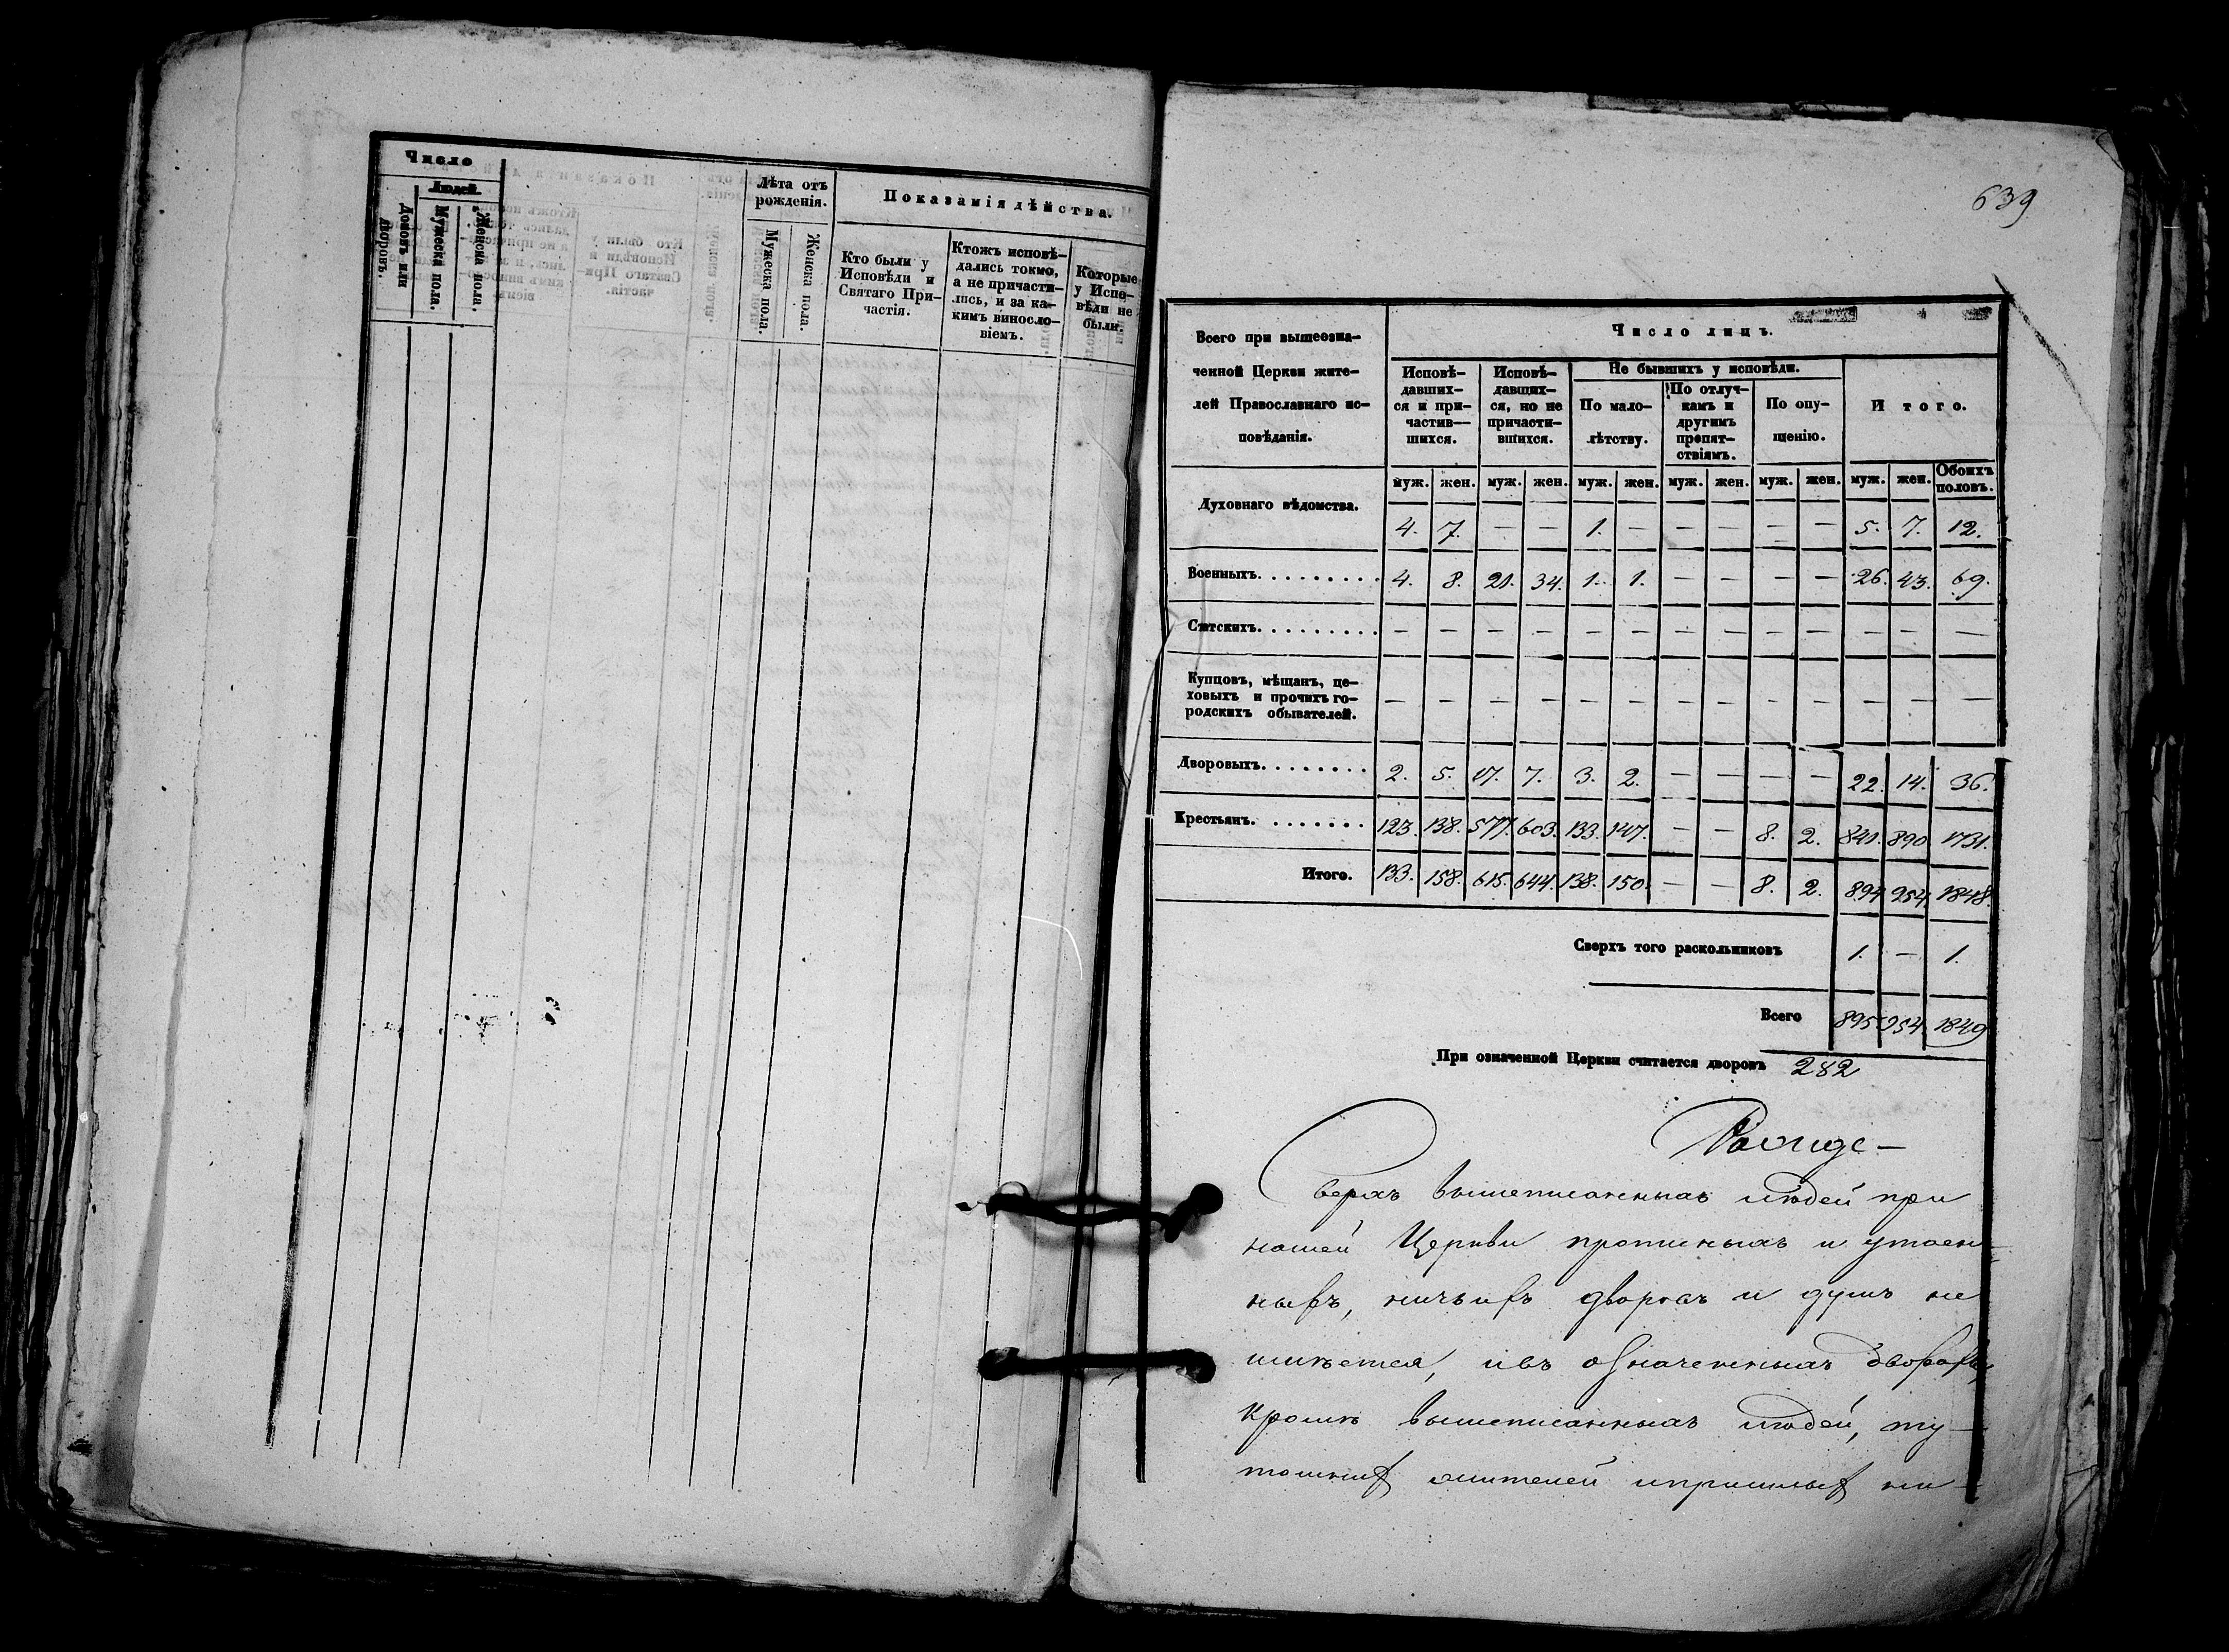 Число
Людей.
Домовъ или дворовъ.
Мужеска пола.
Женска пола.
Лѣта отъ рожденія.
Мужеска пола.
Женска пола.
Показанія дѣйства.
Кто были у
Исповѣди и
Святаго При-
частія.
Ктожъ исповѣ-
дались токмо,
а не причасти-
лись, и за ка-
кимъ виносло-
віемъ.
Которые
у Испо-
вѣди не
были.
639
Всего при вышеозна-
ченной Церкви жите-
лей Православнаго ис-
повѣданія.
Число лицъ.
Исповѣ-
давших-
ся и при-
частив-
шихся.
Исповѣ-
давших-
ся, но не
причасти-
вшихся.
Не бывшихъ у исповѣди.
По мало-
лѣтству.
По отлуч-
камъ и
другимъ
препят-
ствіямъ.
По опу-
щенію.
Итого.
муж. жен. муж. жен. муж. жен. муж. жен. муж. жен. муж. жен. Обоихъ половъ.
Духовнаго вѣдомства. 4. 7. — — 1. — — — — — 5. 7. 12.
Военныхъ. 4. 8. 21. 34. 1. 1. — — — — 26. 43. 69.
Статскихъ. — — — — — — — — — — — — —
Купцовъ, мѣщанъ, це-
ховыхъ и прочихъ го-
родскихъ обывателей. — — — — — — — — — — — — —
Дворовыхъ. 2. 5. 17. 7. 3. 2. — — — — 22. 14. 36.
Крестьянъ. 123. 138. 577. 603. 133. 147. — — 8. 2. 841. 890. 1731.
Итого. 133. 158. 615. 644. 138. 150. — — 8. 2. 894. 954. 1848.
Сверхъ того раскольниковъ 1. — 1.
Всего 895. 954. 1849
При означенной Церкви считается дворовъ 282
Сверхъ вышеписанныхъ людей при
нашей Церкви прописныхъ и утаен-
ныхъ, ничьихъ дворовъ и душъ не
имѣется, и въ означенныхъ дворахъ,
кромѣ вышеписанныхъ людей, ту-
тошнихъ жителей и пришлыхъ ни-